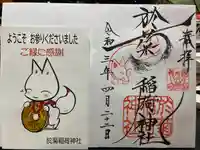 ようこそ お参りくださいました
ご縁に感謝!
於菊稲荷神社
奉拝
於菊稲荷神社
令和三年四月二十三日